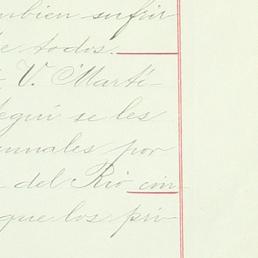 mbien sufrir
de todos.
V. Marti-
seguí se les
ennales por
del Rio con
que los pri-